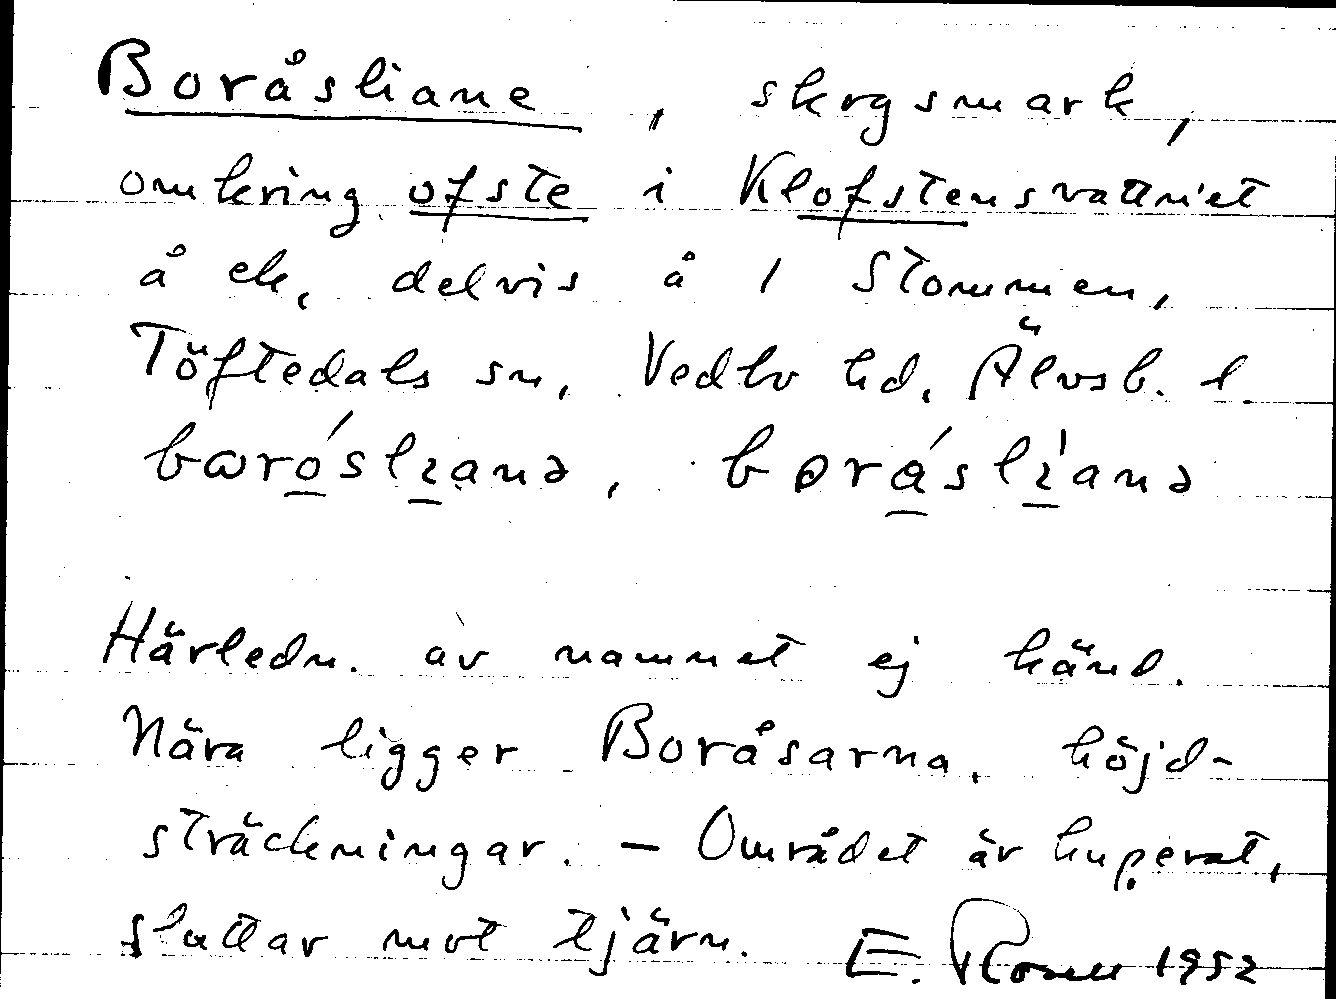 Boråsliane, skogsmark,
omkring ofste i Klofstensvattn'et
å ek. delvis å 1 Stommen,
Töftedals sn, Vedbo hd. Älvsb. l.
bɷróslɩanə, bɵráslɩ́anə
Härledn. av namnet ej känd.
Nära ligger Boråsarna, höjd-
sträckningar. – Området är kuperat,
sluttar mot tjärn. E. 1952